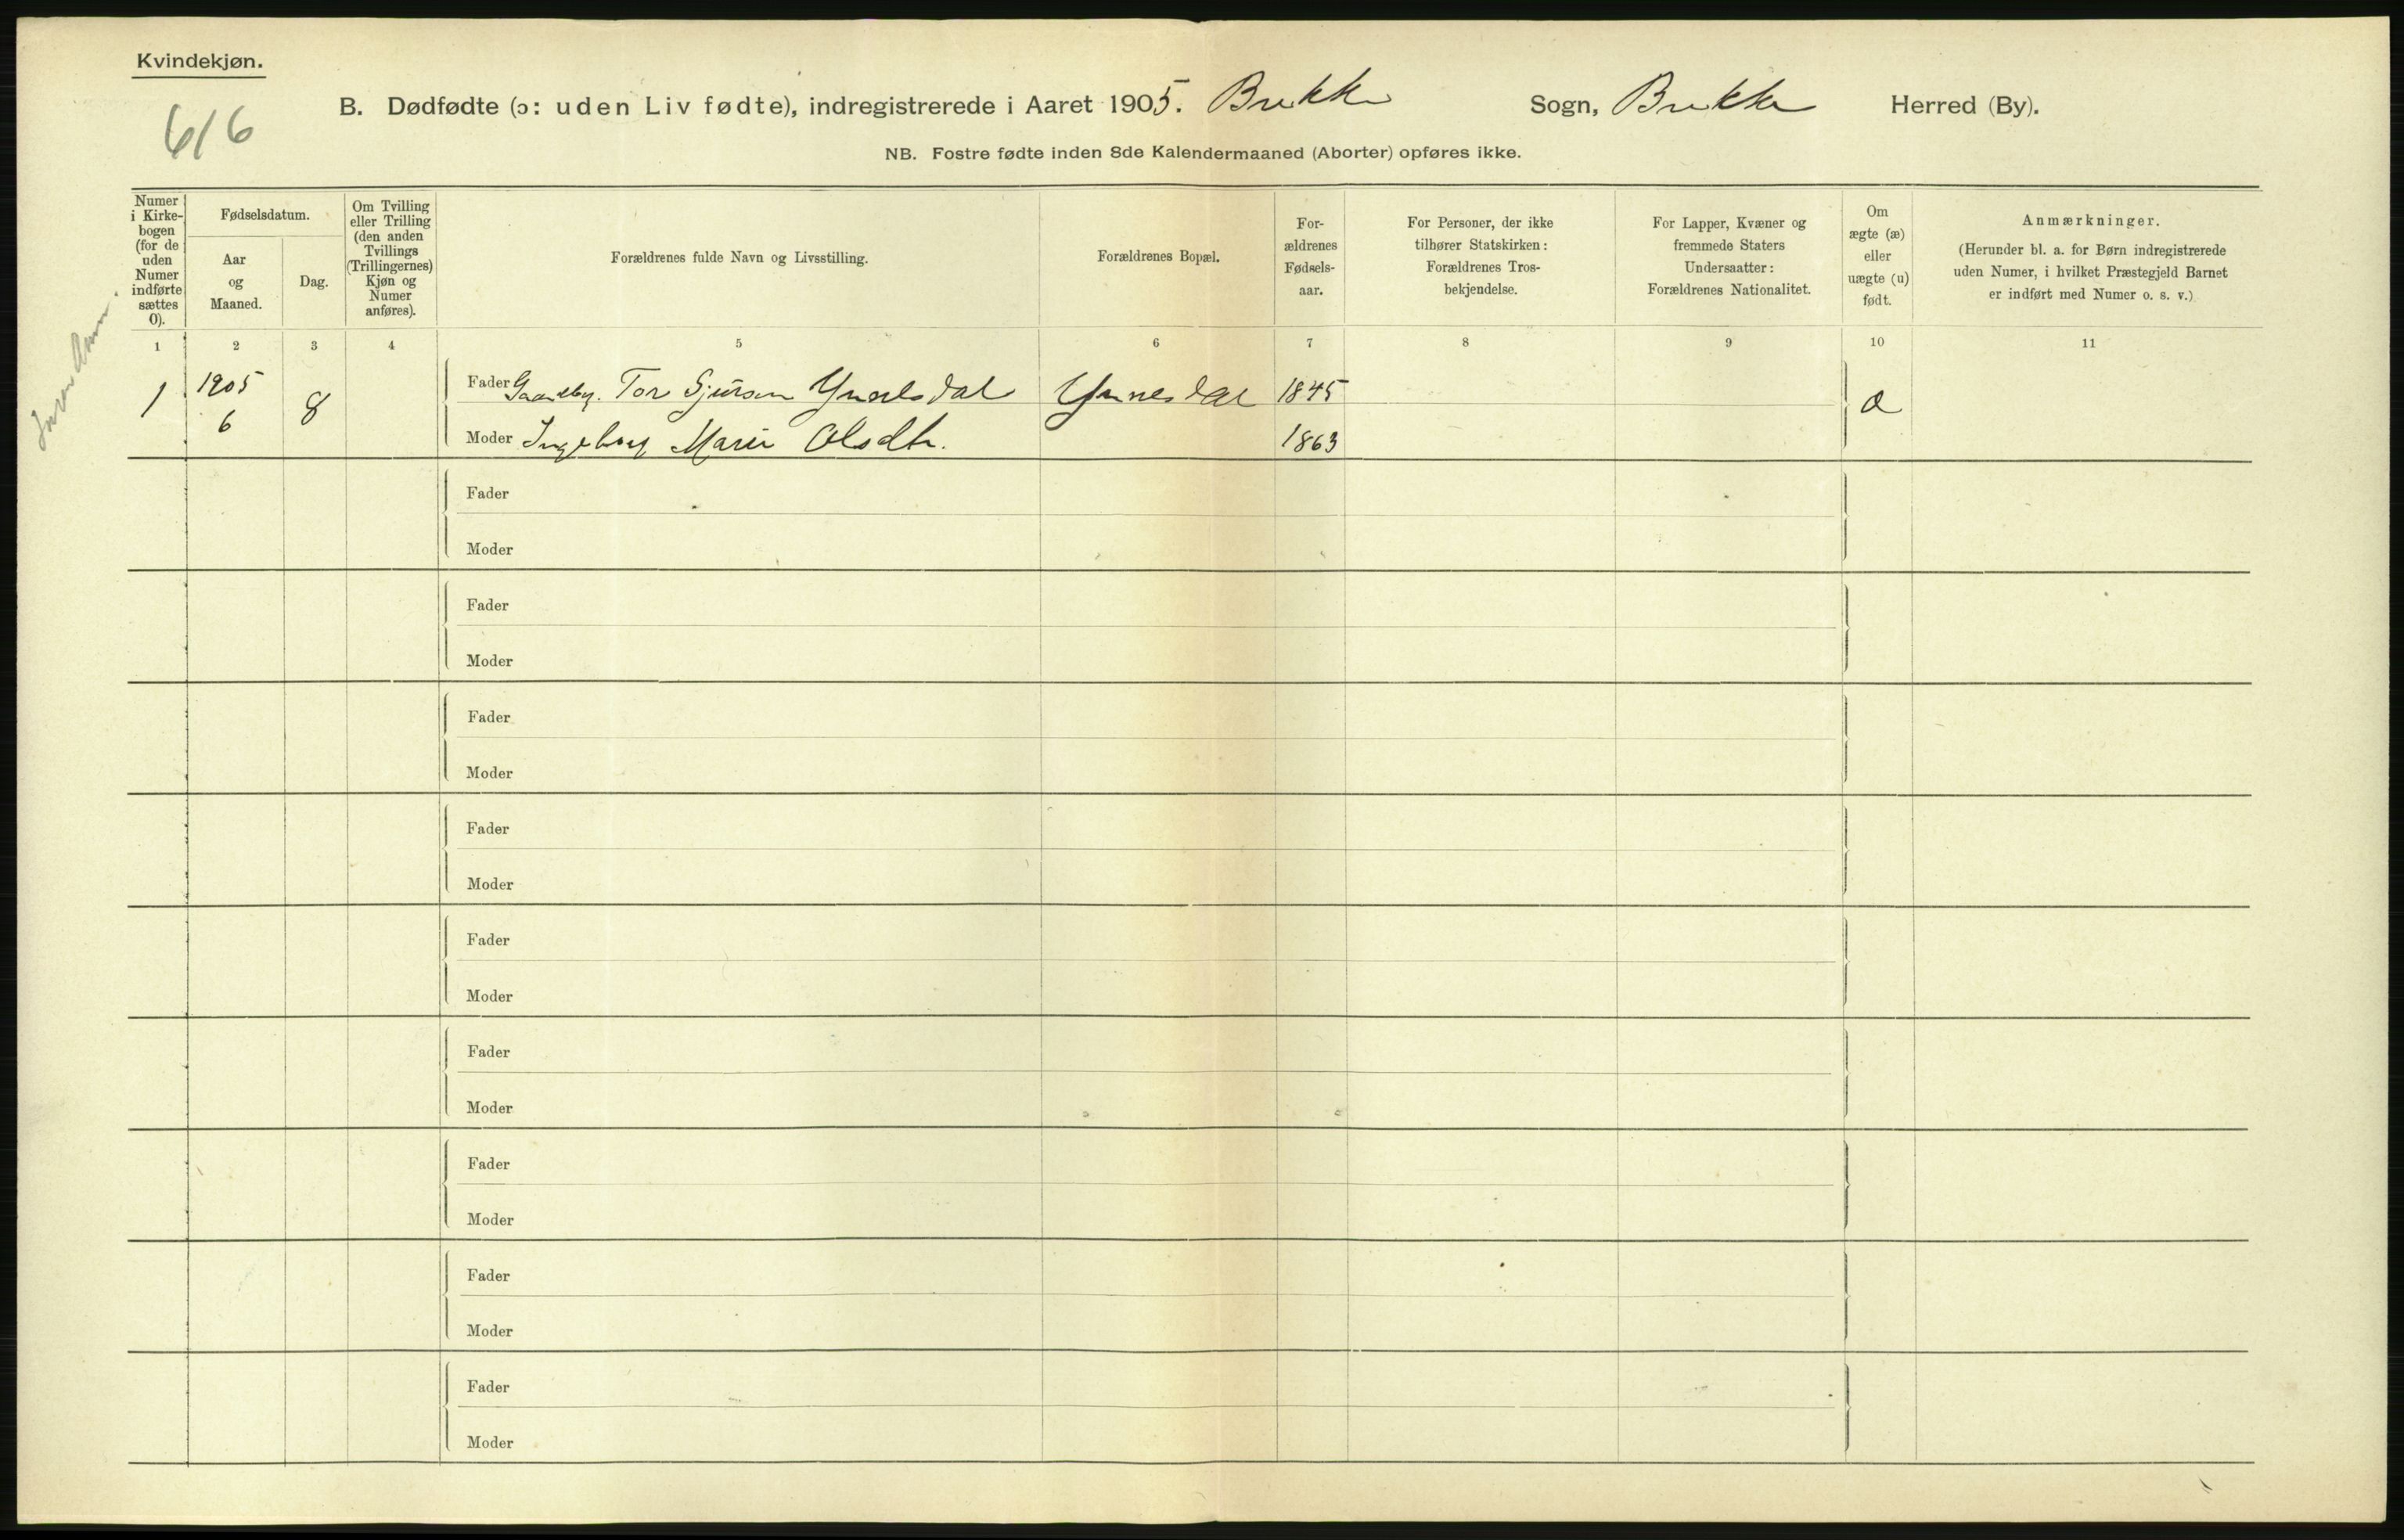 Kvindekjøn.
616
B. Dødfødte (ɔ: uden Liv fødte), indregistrerede i Aaret 1905. Brekke Sogn, Brekke Herred (By).
NB. Fostre fødte inden 8de Kalendermaaned (Aborter) opføres ikke.
Numer i Kirke-bogen (for de uden Numer indførte sættes 0).
Fødselsdatum.
Aar og Maaned.
Dag.
Om Tvilling eller Trilling (den anden Tvillings (Trillingernes) Kjøn og Numer anføres).
Forældrenes fulde Navn og Livsstilling.
Forældrenes Bopæl.
For-ældrenes Fødsels-aar.
For Personer, der ikke tilhører Statskirken: Forældrenes Tros-bekjendelse.
For Lapper, Kvæner og fremmede Staters Undersaatter: Forældrenes Nationalitet.
Om ægte (æ) eller uægte (u) født.
Anmærkninger.
(Herunder bl. a. for Børn indregistrerede uden Numer, i hvilket Præstegjeld Barnet er indført med Numer o. s. v.)
1 2 3 4 5 6 7 8 9 10 11
1 1905 6 8 Fader Gaardbr. Tor Sjursen Ynnesdal Ynnesdal 1845 æ
Moder Ingeborg Marie Olsdtr. 1863
Fader
Moder
Fader
Moder
Fader
Moder
Fader
Moder
Fader
Moder
Fader
Moder
Fader
Moder
Fader
Moder
Fader
Moder